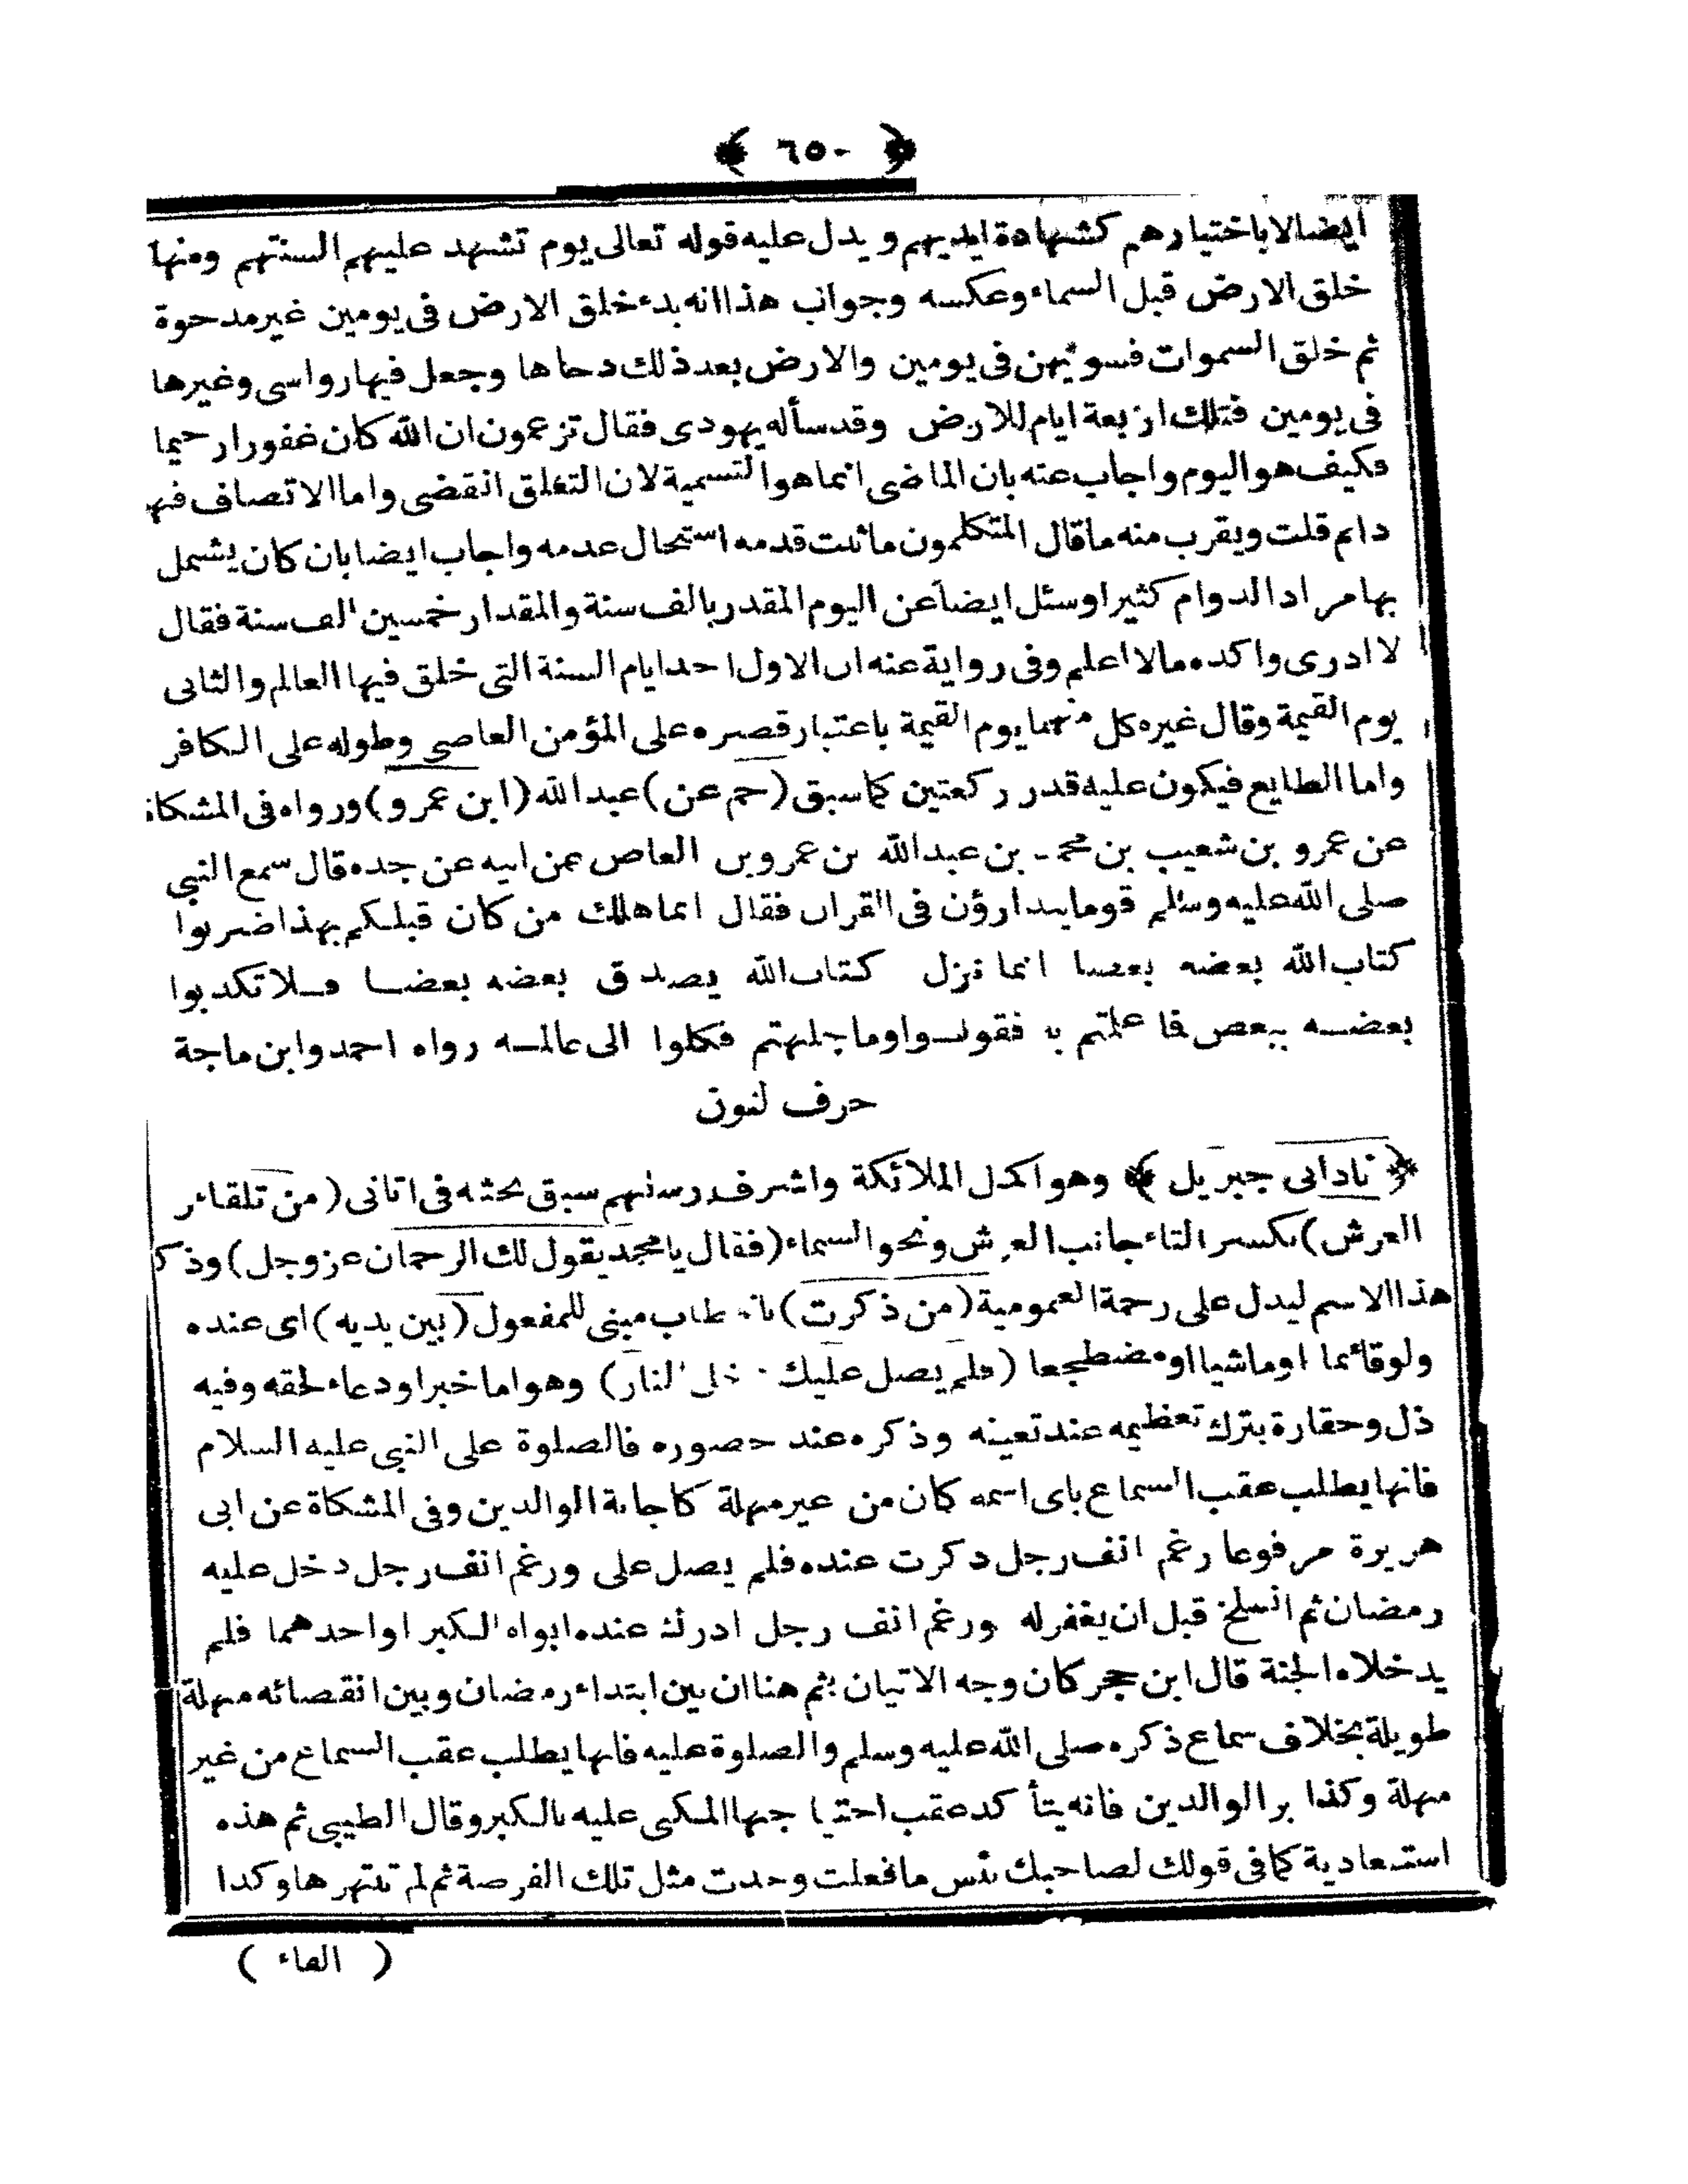 ﴿ ٦٥٠ ﴾
ايضا لا باختيارهم كشهادة ايديهم ويدل عليه قوله تعالى يوم تشهد عليهم السنتهم ومنها
خلق الارض قبل السماء وعكسه وجواب هذا انه بدء خلق الارض فى يومين غير مدحوة
ثم خلق السموات فسويهن فى يومين والارض بعد ذلك دحاها وجعل فيها رواسى وغيرها
فى يومين فتلك اربعة ايام للارض وقد سأله يهودى فقال تزعمون ان الله كان غفورا رحيما
فكيف هو اليوم واجاب عنه بان الماضى انما هو التسمية لان التعلق انقضى واما الاتصاف فهو
دائم قلت ويقرب منه ما قال المتكلمون ما ثبت قدمه استحال عدمه واجاب ايضا بان كان يشمل
بها مراد الدوام كثيرا وسئل ايضا عن اليوم المقدر بالف سنة والمقدار خمسين الف سنة فقال
لا ادرى واكده مالا اعلم وفى رواية عنه ان الاول احد ايام السنة التى خلق فيها العالم والثانى
يوم القيمة وقال غيره كل منهما يوم القيمة باعتبار قصره على المؤمن العاصى وطوله على الكافر
واما الطايع فيكون عليه قدر ركعتين كما سبق (حم عن) عبد الله (ابن عمرو) ورواه فى المشكاة
عن عمرو بن شعيب بن محمد بن عبد الله بن عمرو بن العاص عن ابيه عن جده قال سمع النبى
صلى الله عليه وسلم قوما يتدارؤن فى القران فقال انما هلك من كان قبلكم بهذا ضربوا
كتاب الله بعضه بعضا انما نزل كتاب الله يصدق بعضه بعضا فلا تكذبوا
بعضه ببعض فما علمتم به فقولوا وما جهلتم فكلوا الى عالمه رواه احمد وابن ماجة
حرف النون
﴿ نادانى جبريل ﴾ وهو اكمل الملائكة واشرف رسلهم سبق بحثه فى اتانى (من تلقاء
العرش) بكسر التاء جانب العرش ونحو السماء (فقال يا محمد يقول لك الرحمان عز وجل) وذكر
هذا الاسم ليدل على رحمة العمومية (من ذكرت) بالخطاب مبنى للمفعول (بين يديه) اى عنده
ولو قائما او ماشيا او مضطجعا (فلم يصل عليك دخل النار) وهو اما خبر او دعاء لحقه وفيه
ذل وحقارة بترك تعظيمه عند تعينه وذكره عند حضوره فالصلوة على النبى عليه السلام
فانها يطلب عقب السماع باى اسمه كان من غير مهلة كاجابة الوالدين وفى المشكاة عن ابى
هريرة مرفوعا رغم انف رجل ذكرت عنده فلم يصل على ورغم انف رجل دخل عليه
رمضان ثم انسلخ قبل ان يغفر له ورغم انف رجل ادرك عنده ابواه الكبر او احدهما فلم
يدخلاه الجنة قال ابن حجر كان وجه الاتيان بثم هنا ان بين ابتداء رمضان وبين انقضائه مهلة
طويلة بخلاف سماع ذكره صلى الله عليه وسلم والصلوة عليه فانها يطلب عقب السماع من غير
مهلة وكذا بر الوالدين فانه يتأكد عقب احتياجها المكى عليه بالكبر وقال الطيبى ثم هذه
استبعادية كما فى قولك لصاحبك بئس ما فعلت وجدت مثل تلك الفرصة ثم لم تنتهزها وكذا
( الفاء )